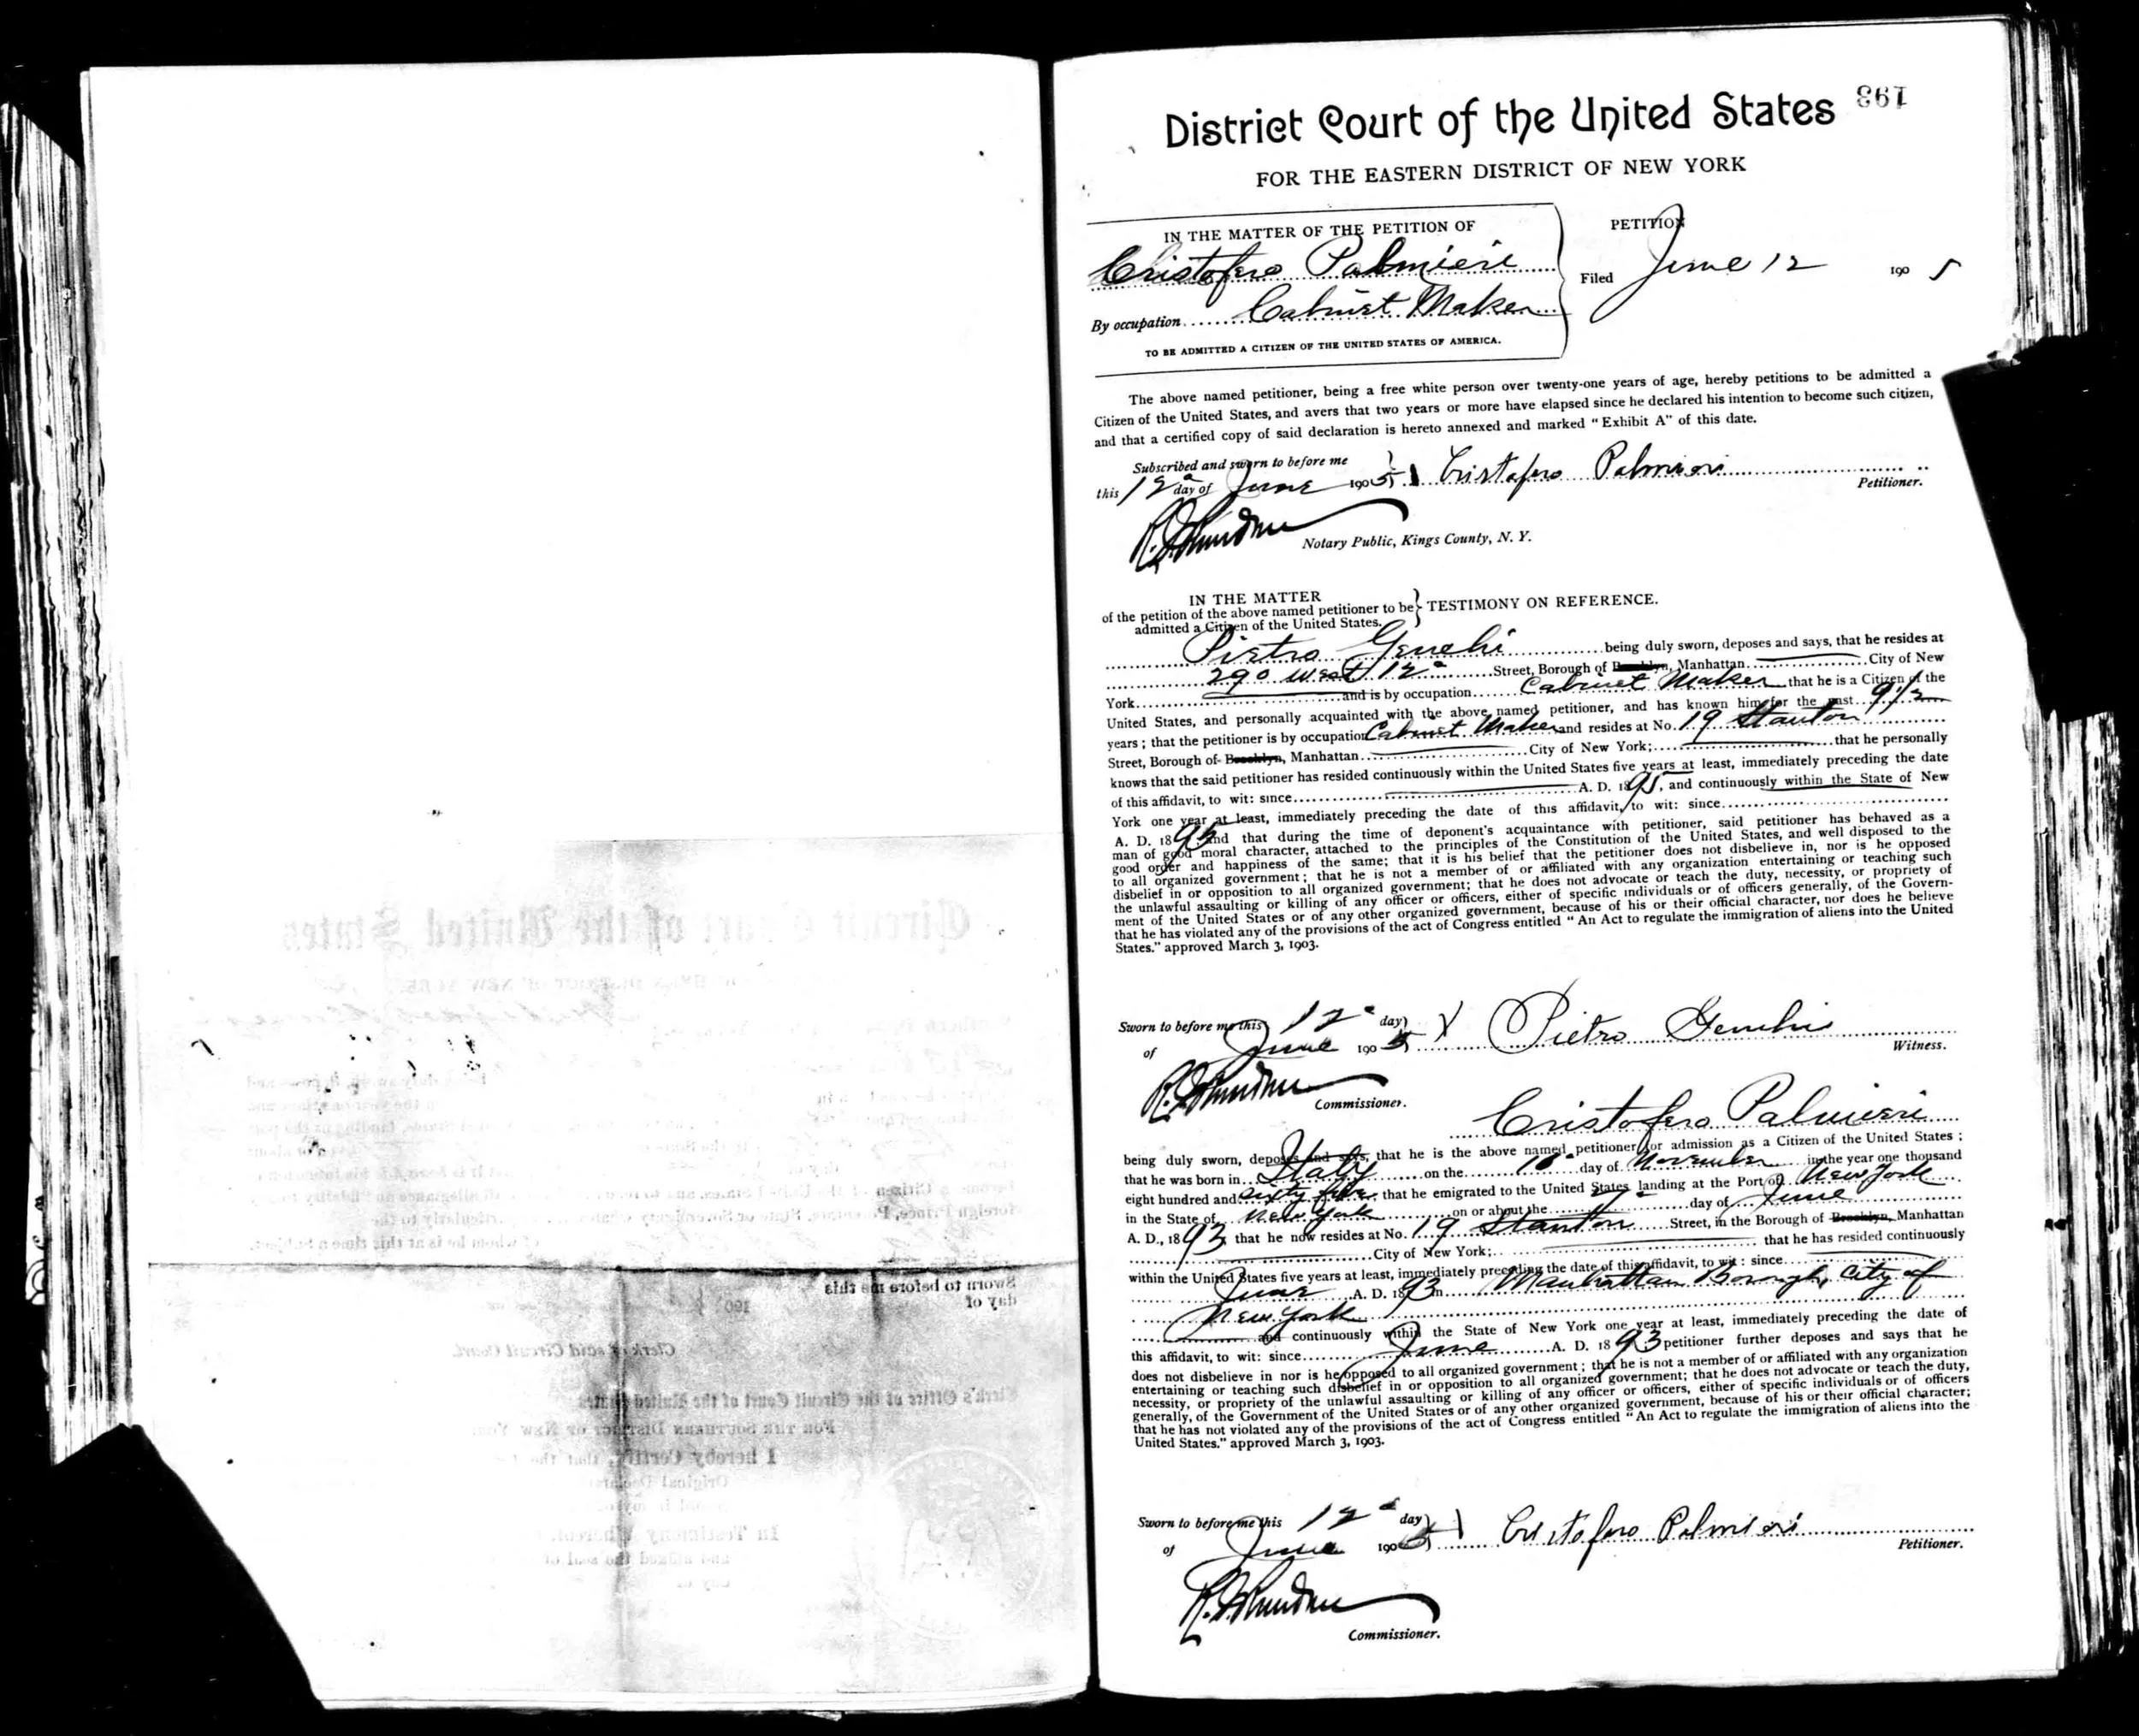 193
District Court of the United States
FOR THE EASTERN DISTRICT OF NEW YORK
IN THE MATTER OF THE PETITION OF
Cristofero Palmieri
By occupation Cabinet Maker
TO BE ADMITTED A CITIZEN OF THE UNITED STATES OF AMERICA.
PETITION
Filed June 12 1905
The above named petitioner, being a free white person over twenty-one years of age, hereby petitions to be admitted a
Citizen of the United States, and avers that two years or more have elapsed since he declared his intention to become such citizen,
and that a certified copy of said declaration is hereto annexed and marked "Exhibit A" of this date.
Subscribed and sworn to before me
this 12 day of June 1905 Cristofero Palmieri
Petitioner.
Notary Public, Kings County, N. Y.
IN THE MATTER
of the petition of the above named petitioner to be
admitted a Citizen of the United States.
TESTIMONY ON REFERENCE.
Pietro being duly sworn, deposes and says, that he resides at
290 West 12 Street, Borough of Brooklyn, Manhattan City of New
York and is by occupation Cabinet Maker that he is a Citizen of the
United States, and personally acquainted with the above named petitioner, and has known him for the past 9 1/2
years; that the petitioner is by occupation Cabinet Maker and resides at No. 19 Stanton
Street, Borough of Brooklyn, Manhattan City of New York; that he personally
knows that the said petitioner has resided continuously within the United States five years at least, immediately preceding the date
of this affidavit, to wit: since A. D. 1895, and continuously within the State of New
York one year at least, immediately preceding the date of this affidavit, to wit: since
A. D. 1895 and that during the time of deponent's acquaintance with petitioner, said petitioner has behaved as a
man of good moral character, attached to the principles of the Constitution of the United States, and well disposed to the
good order and happiness of the same; that it is his belief that the petitioner does not disbelieve in, nor is he opposed
to all organized government; that he is not a member of or affiliated with any organization entertaining or teaching such
disbelief in or opposition to all organized government; that he does not advocate or teach the duty, necessity, or propriety of
the unlawful assaulting or killing of any officer or officers, either of specific individuals or of officers generally, of the Govern-
ment of the United States or of any other organized government, because of his or their official character, nor does he believe
that he has violated any of the provisions of the act of Congress entitled "An Act to regulate the immigration of aliens into the United
States." approved March 3, 1903.
Sworn to before me this 12 day
of June 1905 X Pietro
Witness.
Commissioner.
Cristofero Palmieri
being duly sworn, deposes and says, that he is the above named petitioner for admission as a Citizen of the United States;
that he was born in Italy on the 10 day of November in the year one thousand
eight hundred and sixty five, that he emigrated to the United States, landing at the Port of New York
in the State of New York on or about the day of June
A. D., 1893, that he now resides at No. 19 Stanton Street, in the Borough of Brooklyn, Manhattan
City of New York; that he has resided continuously
within the United States five years at least, immediately preceding the date of this affidavit, to wit: since
June A. D. 1893 in Manhattan Borough, City of
New York
and continuously within the State of New York one year at least, immediately preceding the date of
this affidavit, to wit: since June A. D. 1893 petitioner further deposes and says that he
does not disbelieve in nor is he opposed to all organized government; that he is not a member of or affiliated with any organization
entertaining or teaching such disbelief in or opposition to all organized government; that he does not advocate or teach the duty,
necessity, or propriety of the unlawful assaulting or killing of any officer or officers, either of specific individuals or of officers
generally, of the Government of the United States or of any other organized government, because of his or their official character;
that he has not violated any of the provisions of the act of Congress entitled "An Act to regulate the immigration of aliens into the
United States." approved March 3, 1903.
Sworn to before me this 12 day
of June 1905 Cristofero Palmieri
Petitioner.
Commissioner.